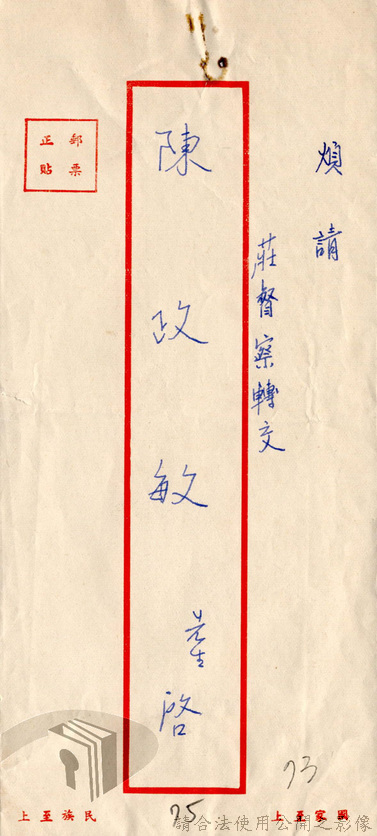 煩請
莊督察轉交
陳政敏先生啓
郵票
正貼
國家至上
民族至上
73
75
請合法使用公開之影像